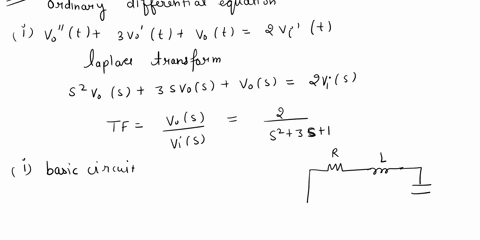 Ordinary differential equation
(i) Vo''(t) + 3Vo'(t) + Vo(t) = 2Vi'(t)
laplace transform
s²Vo(s) + 3sVo(s) + Vo(s) = 2Vi(s)
TF = Vo(s)/Vi(s) = 2/(s²+3s+1)
(i) basic circuit
R L